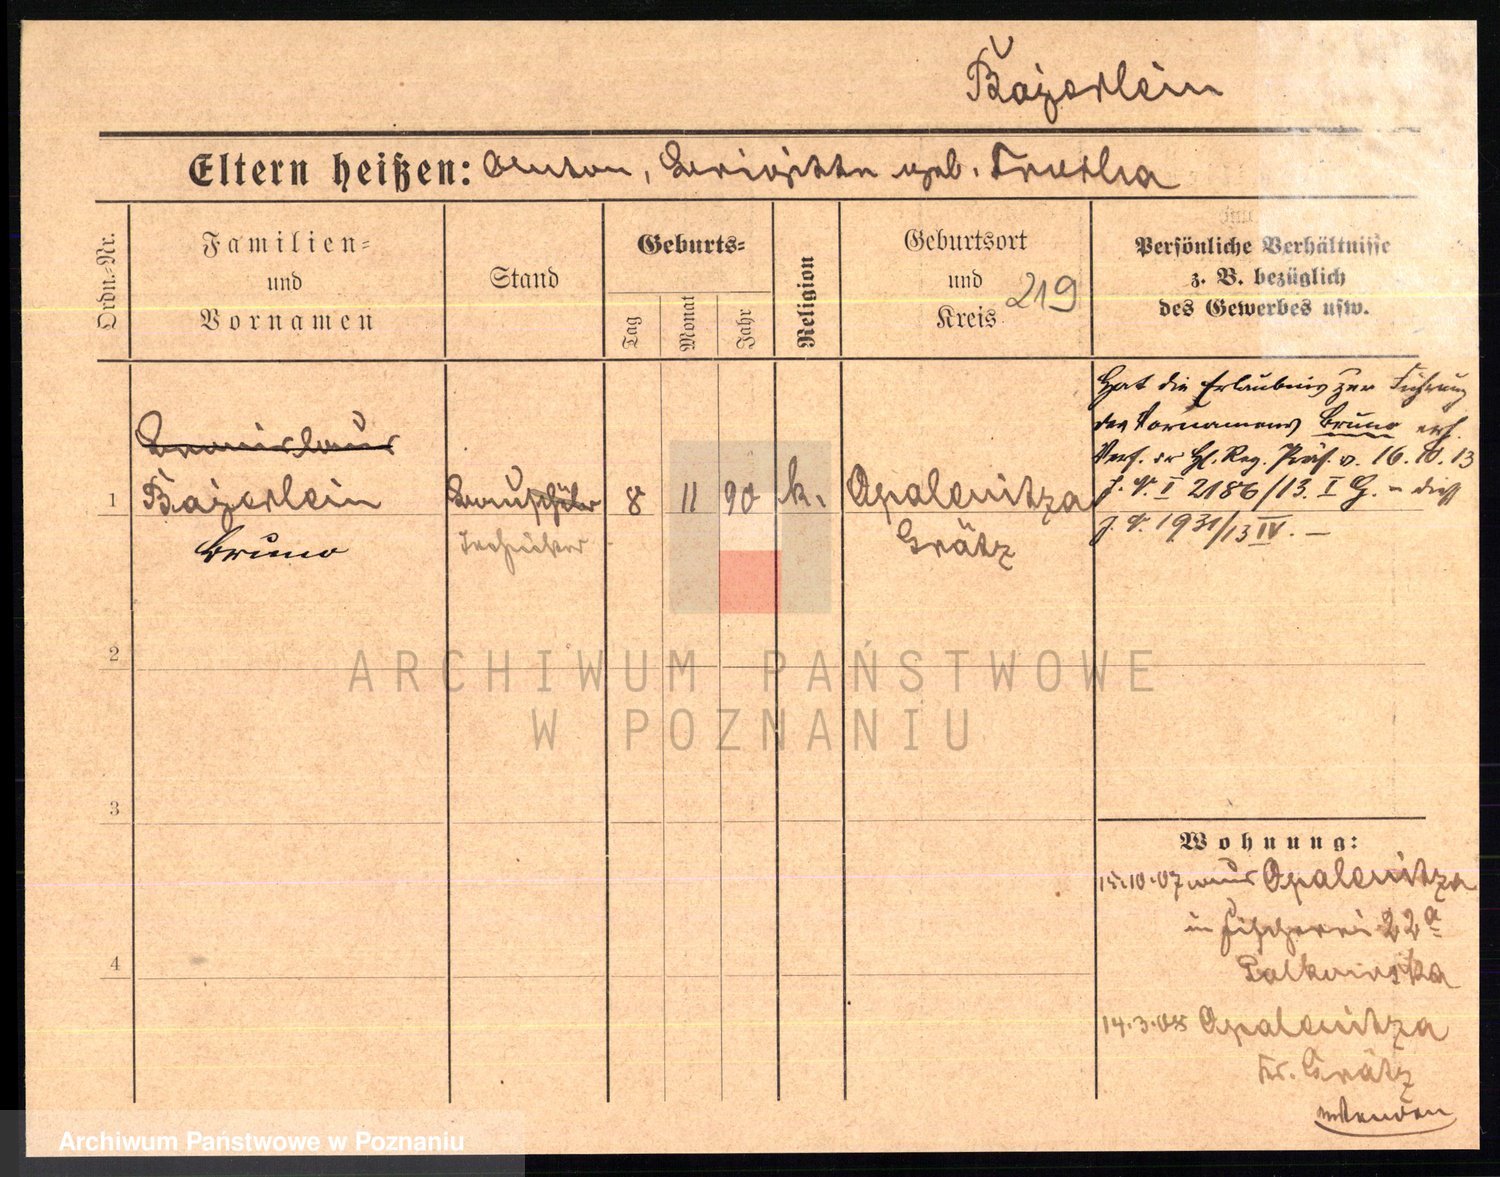 Bajerlein
Eltern heißen: Anton, Brigitte geb. Truska
Ordn.-Nr.
Familien-
und
Vornamen
Stand
Geburts-
Tag
Monat
Jahr
Religion
Geburtsort
und
Kreis
219
Persönliche Verhältnisse
z. B. bezüglich
des Gewerbes usw.
Hat die Erlaubnis zur Führung
des Vornamens Bruno erh.
Verf. Reg. Präs. v. 16.10.13
I 2186/13. I G.
1931/13 IV. —
1
Bajerlein
Bruno
Bauschüler
Techniker
8
11
90
k.
Opalenitza
Grätz
2
3
4
Wohnung:
15.10.07 aus Opalenitza
in Fischerei 22a
14.3.08 Opalenitza
Kr. Grätz
ARCHIWUM PAŃSTWOWE
W POZNANIU
Archiwum Państwowe w Poznaniu